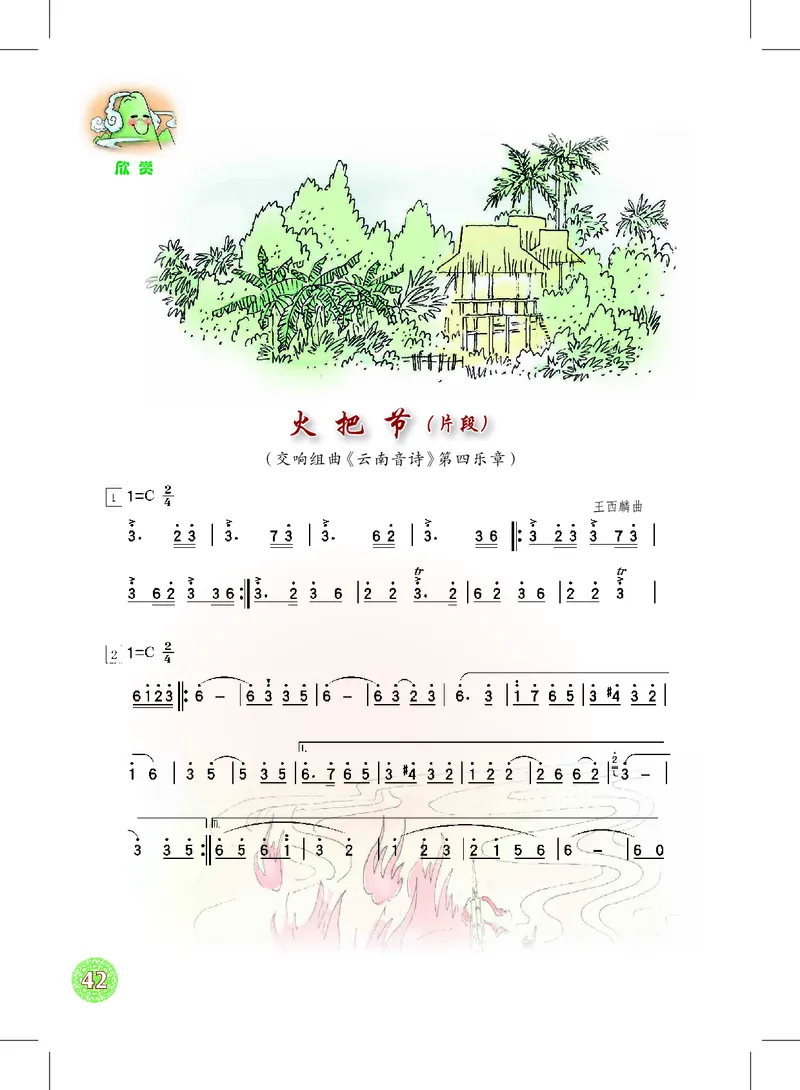 欣赏
火把节（片段）
（交响组曲《云南音诗》第四乐章）
1 1=C 2/4
王西麟曲
3. 2 3 | 3. 7 3 | 3. 6 2 | 3. 3 6 ‖: 3 2 3 3 7 3 |
3 6 2 3 3 6 :‖ 3. 2 3 6 | 2 2 tr 3. 2 | 6 2 3 6 | 2 2 tr 3 |
2 1=C 2/4
6 1 2 3 ‖: 6 – | 6 3 3 5 | 6 – | 6 3 2 3 | 6. 3 | 1 7 6 5 | 3 #4 3 2 |
1 6 | 3 5 | 5 3 5 | I. 6. 7 6 5 | 3 #4 3 2 | 1 2 2 | 2 6 6 2 | 2 3 – |
3 3 5 :‖ II. 6 5 6 1 | 3 2 | 1 2 3 | 2 1 5 6 | 6 – | 6 0
42